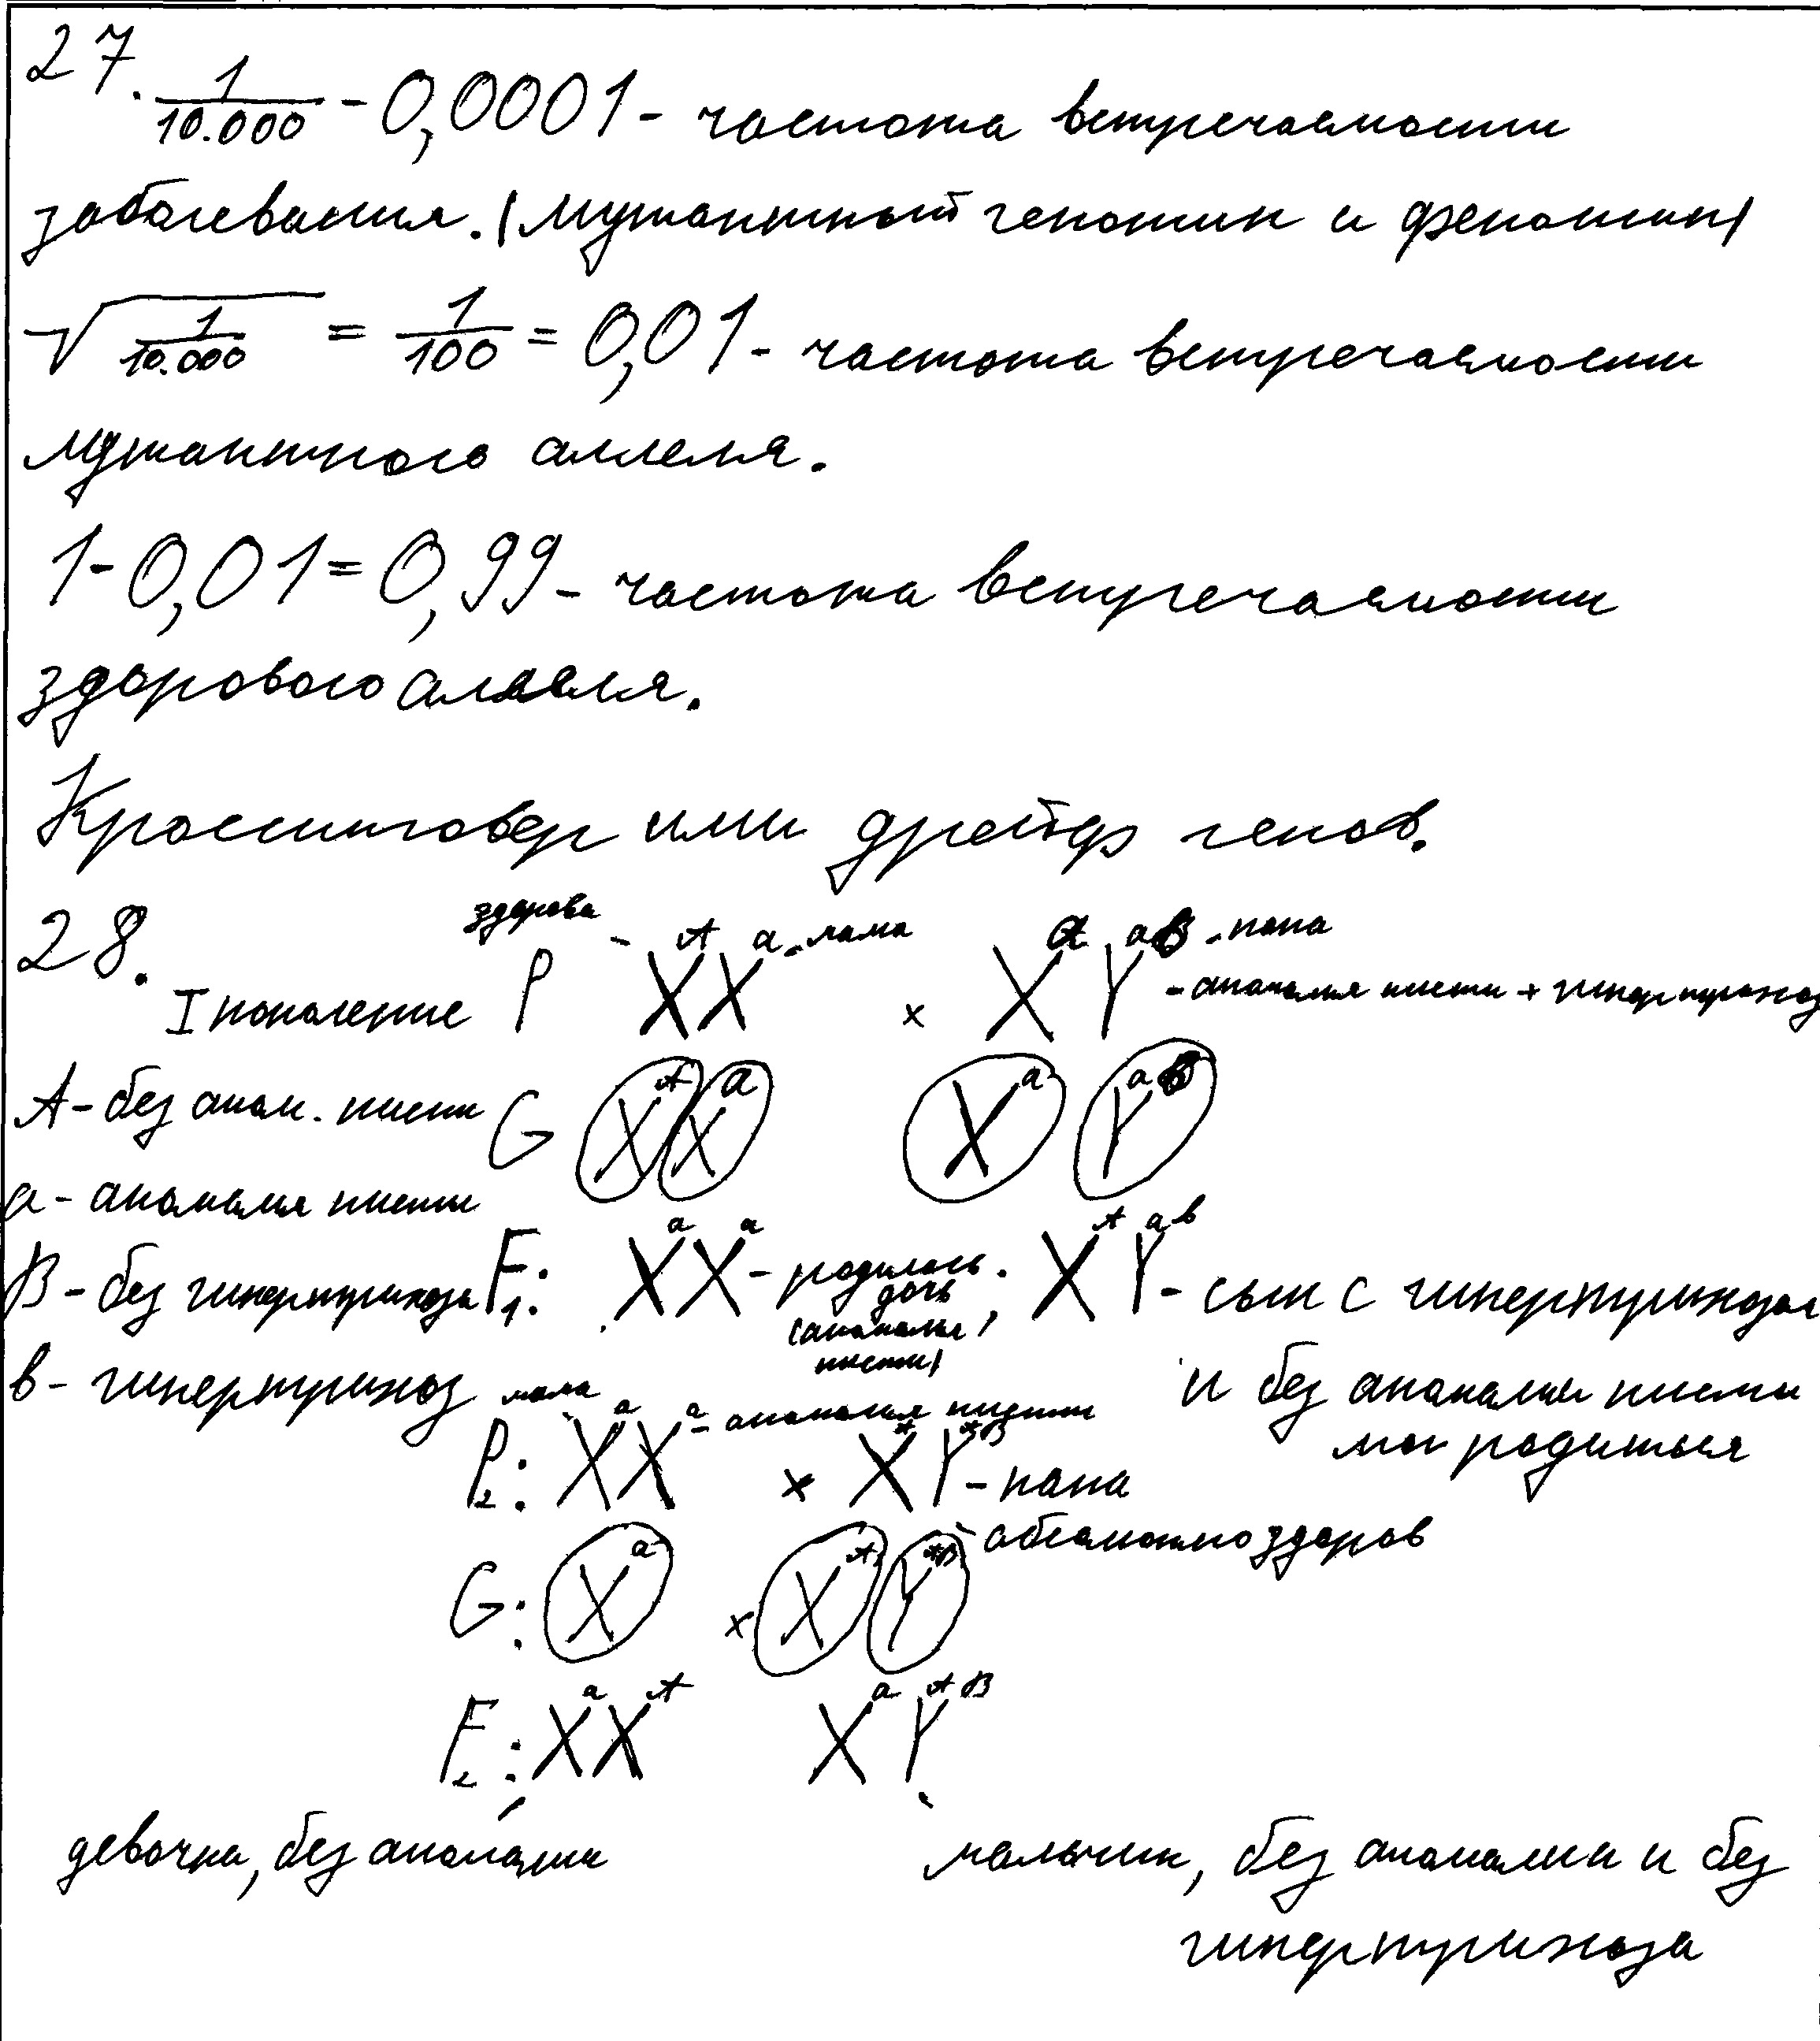 27. 1/10.000 - 0,0001 - частота встречаемости
заболевания. (мутантный генотип и фенотип)
√(1/10.000) = 1/100 = 0,01 - частота встречаемости
мутантного аллеля.
1-0,01=0,99 - частота встречаемости
здорового аллеля.
Кроссинговер или дрейф генов.
28. здорова
I поколение P - XᴬXᵃ - мама × XᵃYᵃᵇ - папа - аномалия кисти + гипертрихоз
A - без аном. кисти G Xᴬ Xᵃ Xᵃ Yᵃᵇ
a - аномалия кисти
B - без гипертрихоза F₁: XᵃXᵃ - родилась дочь (аномалия кисти); XᴬYᵃᵇ - сын с гипертрихозом
в - гипертрихоз и без аномалии кисти
мог родиться
P₂: мама XᵃXᵃ - аномалия кисти × XᴬYᴬᴮ - папа
абсолютно здоров
G: Xᵃ × Xᴬ Yᴬᴮ
F₂: XᵃXᴬ XᵃYᴬᴮ
девочка, без аномалии мальчик, без аномалии и без
гипертрихоза